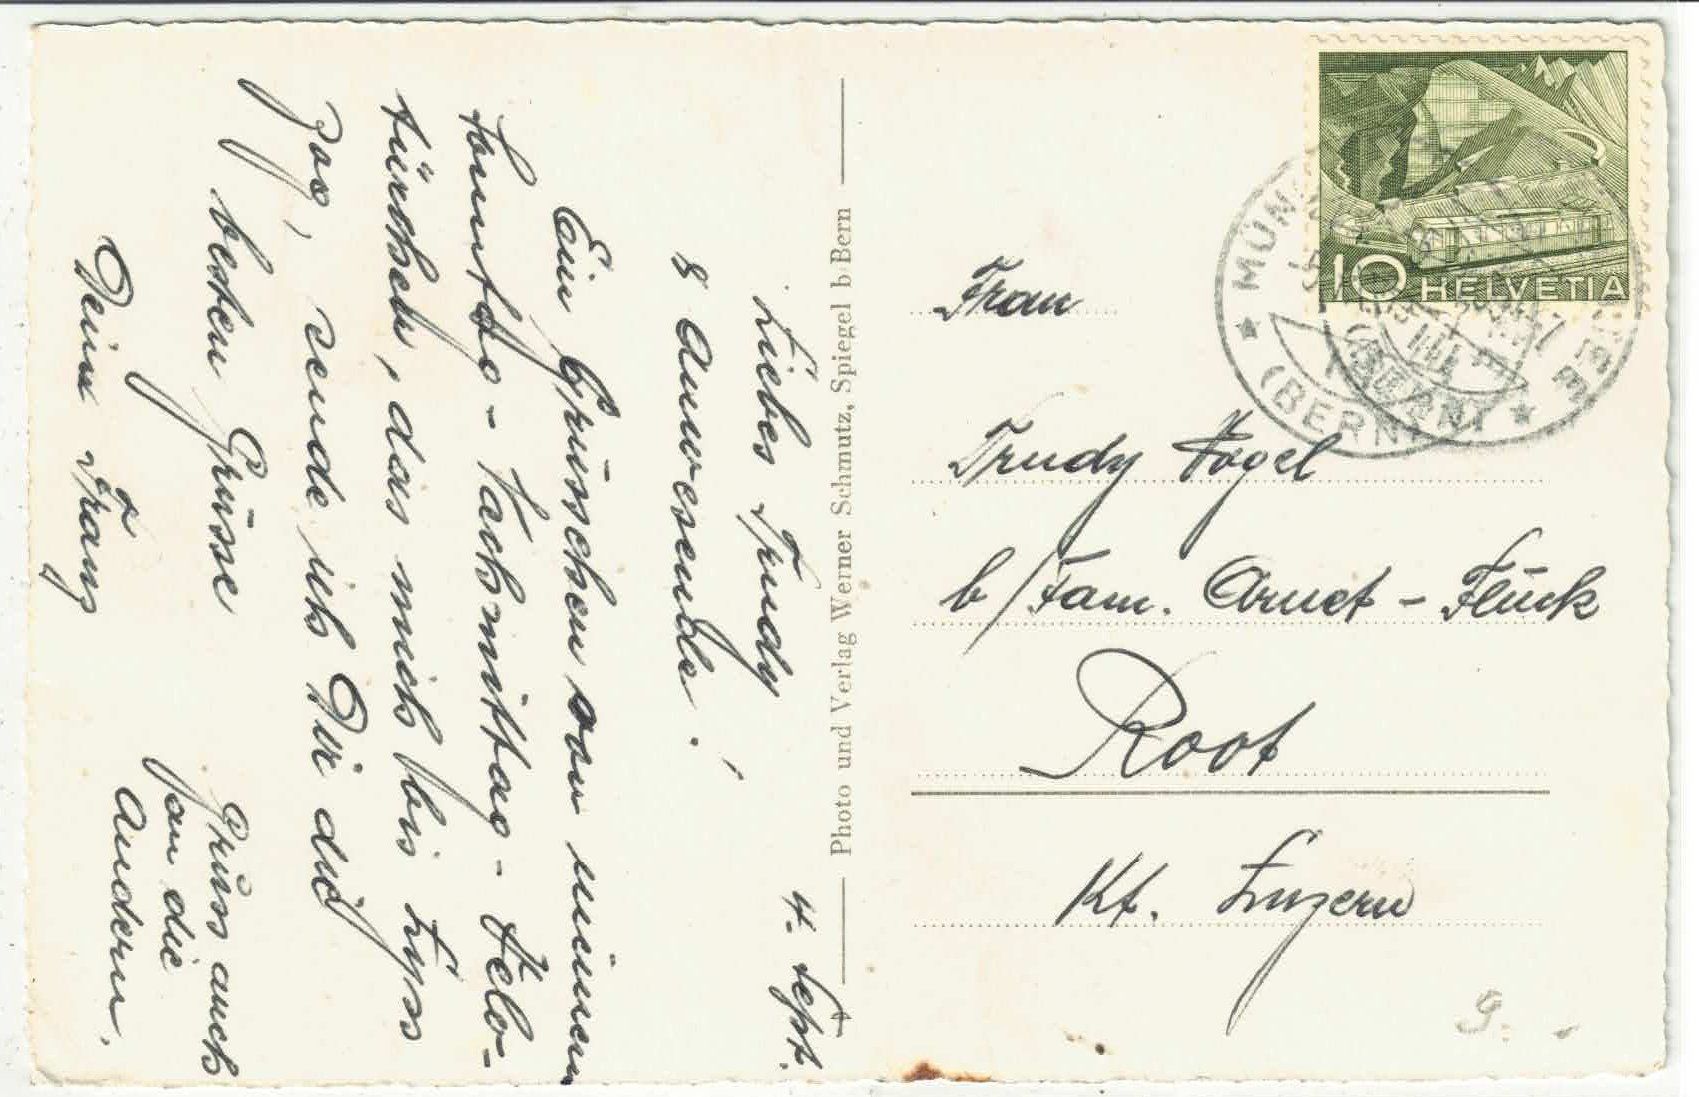 4. Sept.
Liebes Trudy
& Anwesende!
Ein Grüsschen von meinem
Sonntag-Nachmittag-Velo-
türchen, das mich bis Lyss
zog, sende ich Dir und
besten Grüsse
Dein Franz
Gruss auch
an die
Andern.
Photo und Verlag Werner Schmutz, Spiegel b/Bern
10 HELVETIA
(BERN)
Frau
Trudy Vogel
b/Fam. Arnet-Flück
Root
Kt. Luzern
9.